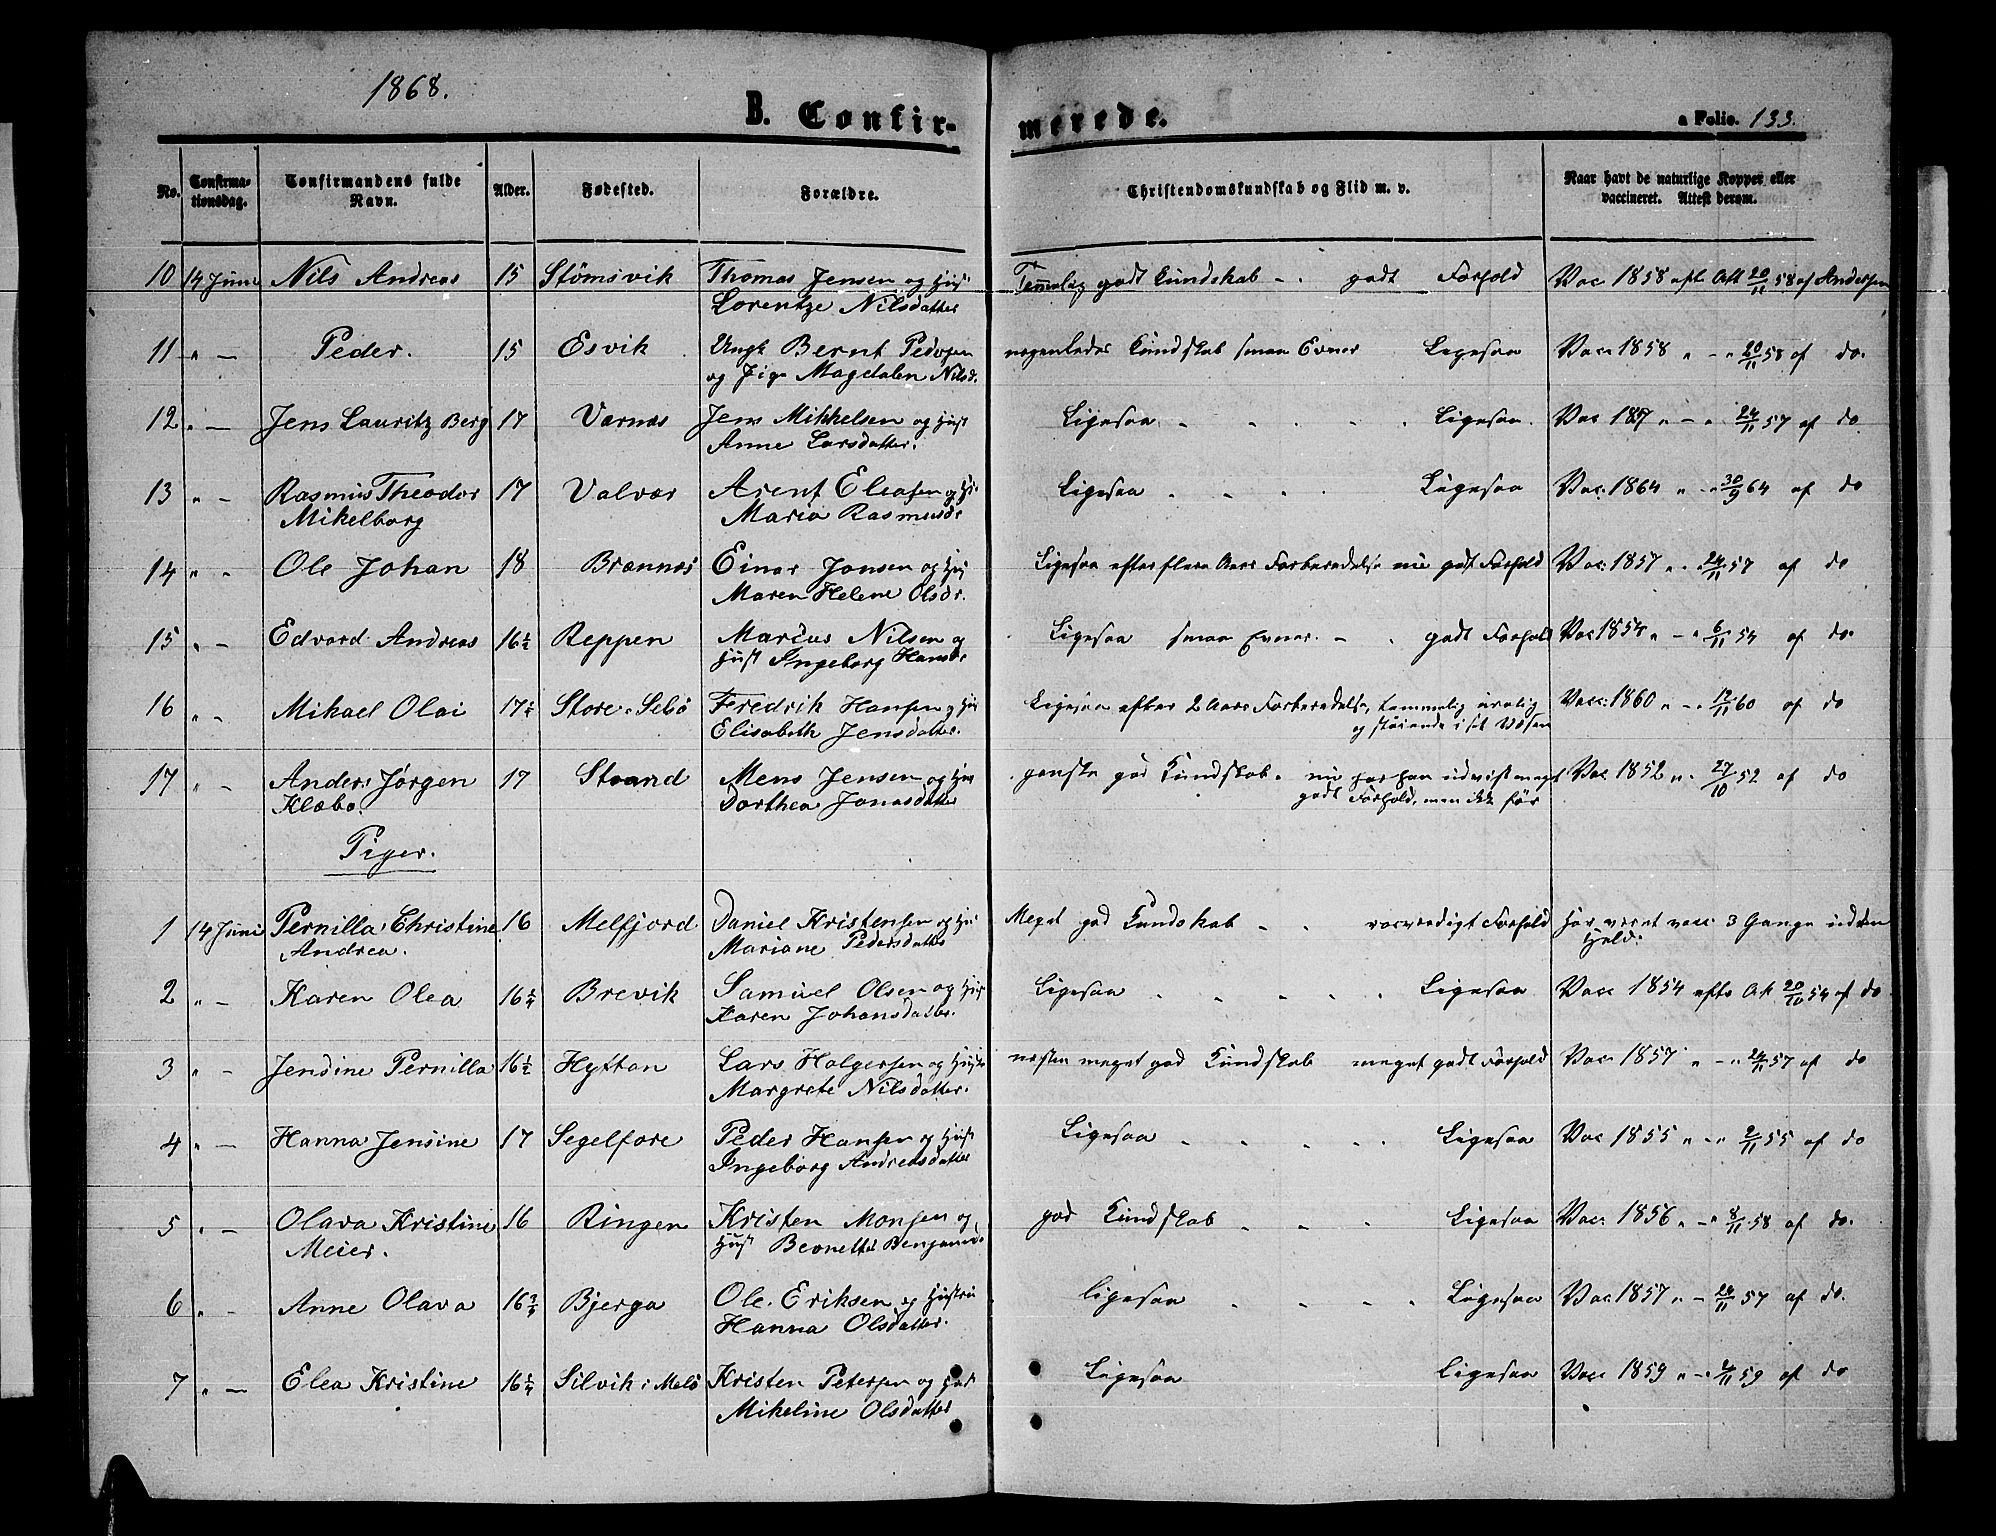 1868.
B. Confir-
merede.
a Folio. 133.
No. Confirma-tionsdag. Confirmandens fulde Navn. Alder. Fødested. Forældre. Christendomskundskab og Flid m. v. Naar havt de naturlige Kopper eller vaccineret. Attest derom.
10 14 Juni Nils Andreas 15 Stömsvik Thomas Jensen og Hust Temmelig godt Kundskab - . godt Forhold Vac 1858 eft. Att 20/11 58 af Andersen
Lorentze Nilsdatter
11 " - Peder. 15 Esvik Ungk Bernt Pedersen nogenledes Kundskab smaa Evner Ligesaa Vac 1858 " - " 20/11 58 af do.
og Pige Magdalen Nilsd.
12 " - Jens Lauritz Berg 17 Varnæs Jens Mikkelsen og Hust Ligesaa " " " " Ligesaa. Vac 1857 " - " 24/11 57 af do
Anne Larsdatter.
13 " - Rasmus Theodor 17 Valvær Arent Eleasen og H. Ligesaa " " " Ligesaa Vac. 1864 " - " 30/9 64 af do
Mikelborg Maria Rasmusdr
14 " - Ole Johan 18 Brænnæs Einar Jonsen og Hus Ligesaa efter flere Aars Forberedelse nu godt Forhold Vac. 1857 " - " 24/11 57 af do
Maren Helene Olsdr.
15 " - Edvard Andreas 16½ Reppen Marcus Nilsen og Ligesaa smaa Evner. - . godt Forhold Vac 1854 " - " 6/11 54 af do.
Hust Ingeborg Hansdr
16 " - Mikael Olai 17¼ Store Selö Fredrik Hansen og Hus Ligesaa efter 2 Aars Forberedelse, temmelig urolig Vacc. 1860 " - " 12/11 60 af do
Elisabeth Jensdatter. og støiende i sit Væsen
17 " - Anders Jørgen 17 Strand Mens Jensen og Hus ganske god Kundskab. nu har han udvist meget Vac 1852 " " 27/10 52 af do
Klæbo. Dorthea Jonasdatter godt Forhold, men ikke før
Piger.
1 14 Juni Pernilla Christine 16 Melfjord Daniel Kristensen og Hus Meget god Kundskab " " rosværdigt Forhold Har været vacc 3 Gange uden
Andrea. Mariane Pedersdatter Held.
2 " - Karen Olea 16¼ Brevik Samuel Olsen og Hus Ligesaa " " " " Ligesaa Vacc 1854 efter Att 20/10 54 af do
Karen Johansdatter.
3 " - Jensine Pernilla 16½ Hyttan Lars Holgersen og Hust næsten meget god Kundskab meget godt Forhold Vac. 1857 " - " 24/11 57 af do
Margrete Nilsdatter.
4 " - Hanna Jensine 17 Segelfore Peder Hansen og Hust Ligesaa " " " " Ligesaa Vac 1855 " - " 2/11 55 af do
Ingeborg Andreasdatter
5 " - Olava Kristine 16 Ringen Kristen Monsen og god Kundskab " " " Ligesaa Vac. 1856 " - " 8/11 58 af do.
Meier. Hust Beonette Benjamind.
6 " - Anne Olava 16¾ Bjerga Ole Eriksen og Hustru Ligesaa " " " " Ligesaa Vac. 1857 " - 24/11 57 af do.
Hanna Olsdatter.
7 " - Elea Kristine 16¼ Silvik i Melö Kristen Petersen og Hust Ligesaa Ligesaa Vacc 1859 " - " 4/11 59 af do
Mikeline Olsdatter